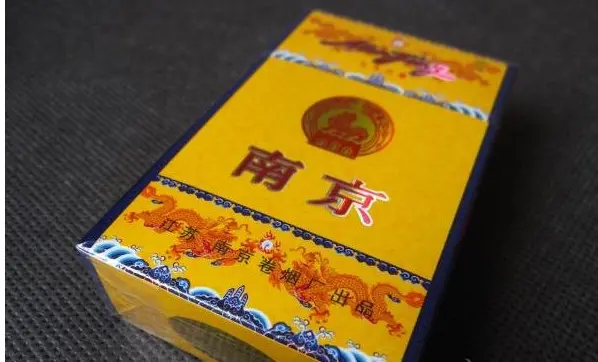 Nanjing
南京
江苏·南京卷烟厂出品